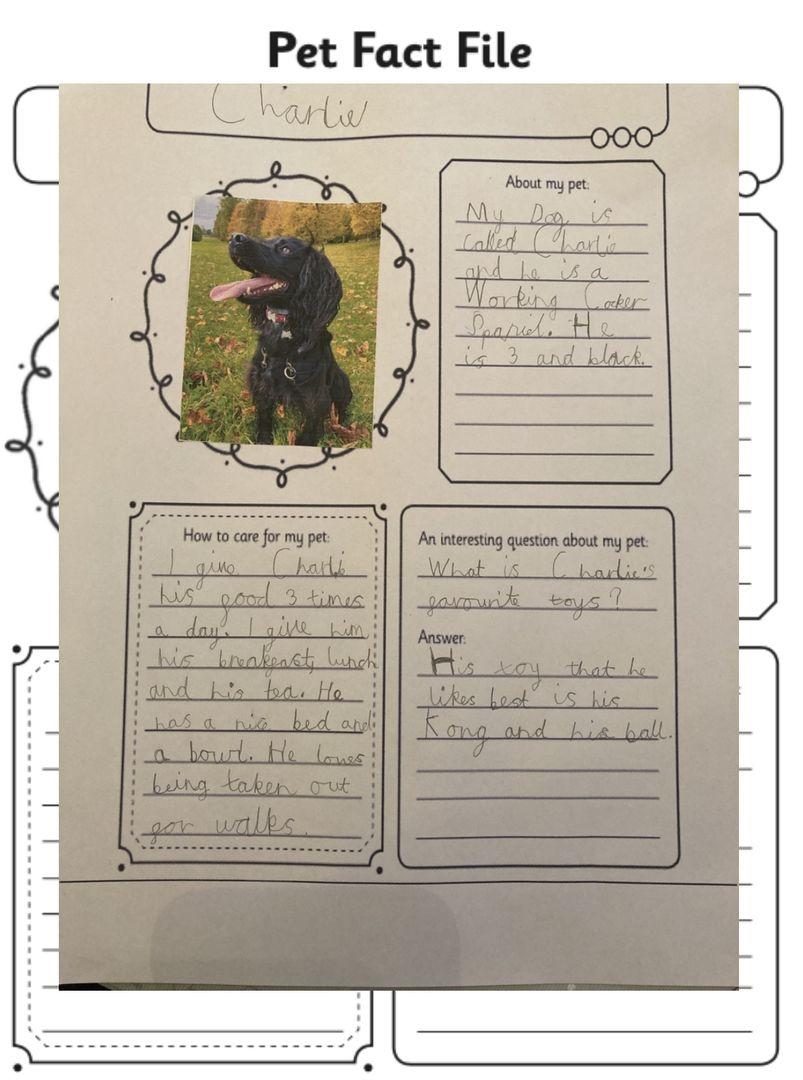 Pet Fact File
Charlie
About my pet:
My Dog is
called Charlie
and he is a
Working Cocker
Spaniel. He
is 3 and black.
How to care for my pet:
I give Charlie
his food 3 times
a day. I give him
his breakfast, lunch
and his tea. He
has a nice bed and
a bowl. He loves
being taken out
for walks.
An interesting question about my pet:
What is Charlie's
favourite toys?
Answer:
His toy that he
likes best is his
Kong and his ball.